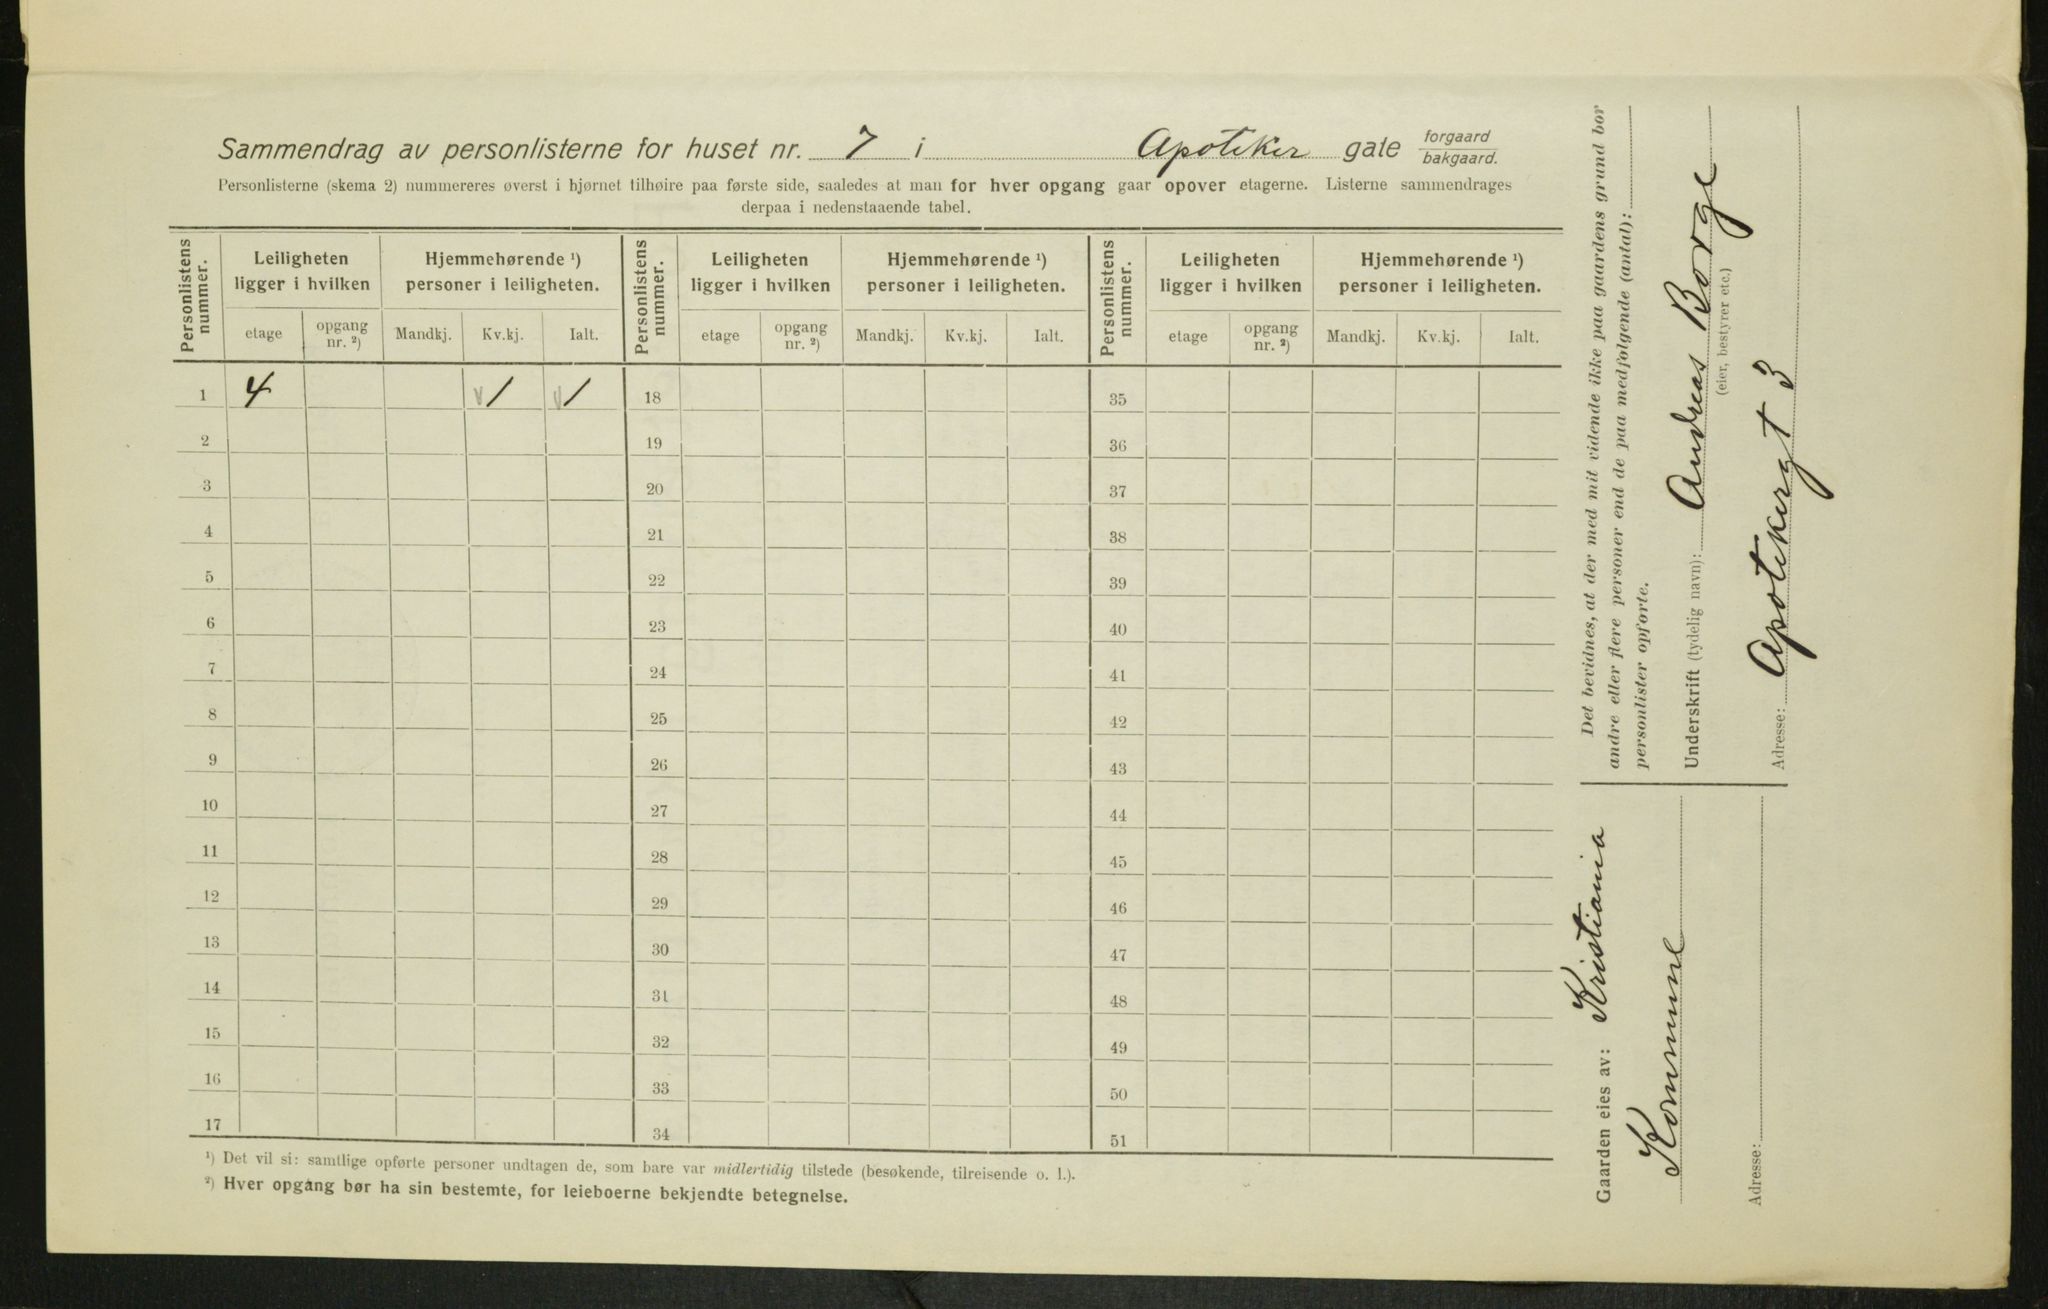 Sammendrag av personlisterne for huset nr. 7 i Apoteker gate forgaard bakgaard.
Personlisterne (skema 2) nummereres øverst i hjørnet tilhøire paa første side, saaledes at man for hver opgang gaar opover etagerne. Listerne sammendrages
derpaa i nedenstaaende tabel.
Personlistens nummer. Leiligheten ligger i hvilken Hjemmehørende ¹) personer i leiligheten. Personlistens nummer. Leiligheten ligger i hvilken Hjemmehørende ¹) personer i leiligheten. Personlistens nummer. Leiligheten ligger i hvilken Hjemmehørende ¹) personer i leiligheten.
etage opgang nr. ²) Mandkj. Kv.kj. Ialt. etage opgang nr. ²) Mandkj. Kv.kj. Ialt. etage opgang nr. ²) Mandkj. Kv.kj. Ialt.
1 4 v 1 v 1 18 35
2 19 36
3 20 37
4 21 38
5 22 39
6 23 40
7 24 41
8 25 42
9 26 43
10 27 44
11 28 45
12 29 46
13 30 47
14 31 48
15 32 49
16 33 50
17 34 51
¹) Det vil si: samtlige opførte personer undtagen de, som bare var midlertidig tilstede (besøkende, tilreisende o. l.).
²) Hver opgang bør ha sin bestemte, for leieboerne bekjendte betegnelse.
Det bevidnes, at der med mit vidende ikke paa gaardens grund bor
andre eller flere personer end de paa medfolgende (antal):
personlister opforte.
Underskrift (tydelig navn): Andreas Borge
(eier, bestyrer etc.)
Adresse: Apotekergt 3
Gaarden eies av: Kristiania
Kommune
Adresse: